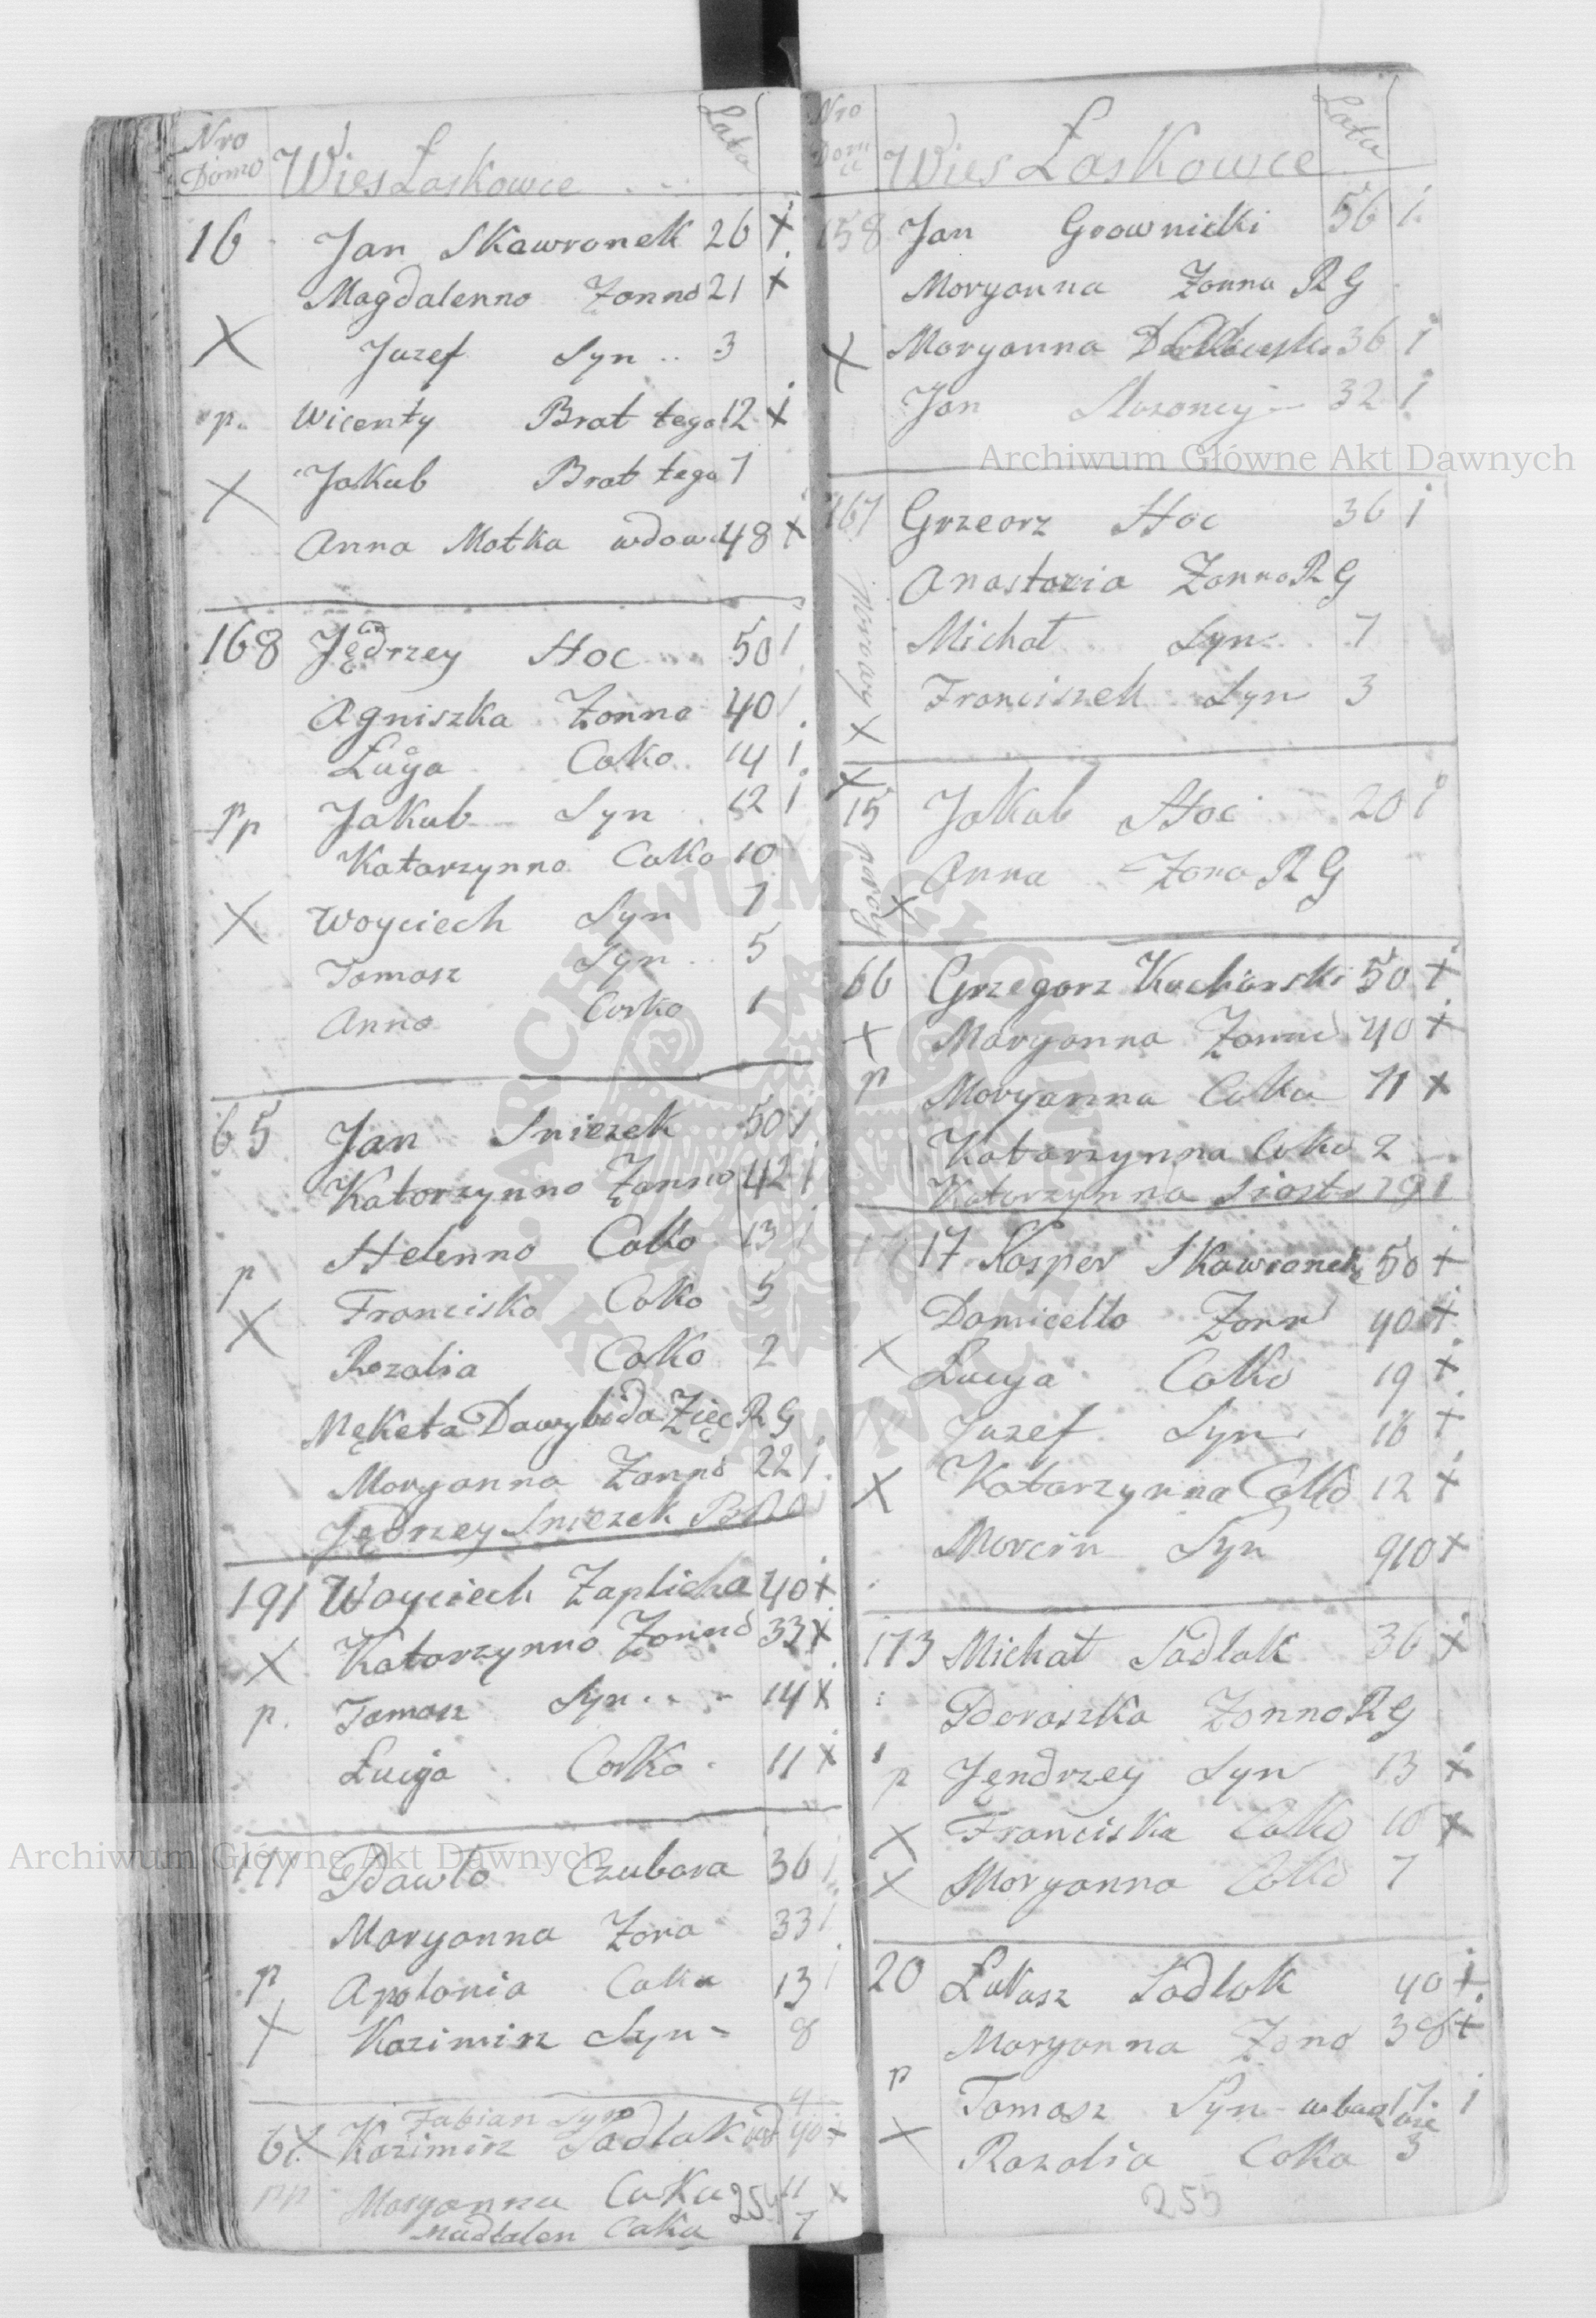 Nro
Domo
Wies Łaskowce
Lata
16 Jan Skawronek 26 x
Magdalenna Żonna 21 x
X Juzef Syn .. 3
p. Wicenty Brat tego 12 x
X Jakub Brat tego 7
Anna Motka wdowa 48 x
168 Jędrzey Hoc 50 i
Agniszka Żonna 40 i
Łucya Coko 14 i
pp Jakub Syn 12 i
Katarzynna Coko 10
X Woyciech Syn 7
Tomasz Syn 5
Anna Corko 1
65 Jan Sniezek 50 i
Katorzynno Żonno 42 i
Helenno Coko 13 i
p Francisko Coko 5
X Rozalia Coko 2
Męketa Dawybida Zięc R G
Moryanna Zonno 22 i
Jędrzey Sniezek
191 Woyciech Zaplicha 40 x
X Katorzynno Żonno 33 x
p. Tomasz Syn 14 x
Łucyja Corko 11 x
171 Pawło Czubara 36 i
Maryanna Zona 33 i
p Apolonia Coka 13 i
X Kazimirz Syn 8
Fabian Syn 4
61 X Kazimirz Sadlak wd 40 x
pp Maryanna Cuka 11 x
254
Madlalen Coka 7
Nro
Domu
Wies Łaskowce
Lata
158 Jan Grownicki 56 i
Moryanna Zonna R G
X Moryanna 36 i
Jon 32 i
167 Grzeorz Hoc 36 i
Anastazia Zonna R G
Michał Syn 7
Franciszek Syn 3
X
X
15 Jakub Hoc 20 i
Anna Zona R G
X
66 Grzegorz Kucharski 50 x
X Maryanna Zonna 40 x
p Moryanna Coka 11 x
Katarzynna Coko 2
Katarzynna Siostr 19 i
17 Kosper Skawronek 50 x
Domicella Zonn 40 x
X Lucya Coko 19 x
Juzef Syn 16 x
X Katarzynna Coko 12 x
Morcin Syn 910 x
173 Michał Sadlak 36 x
Poraszka Zonna R G
p Jęndrzey Syn 13 x
X Franciska Coko 10 x
X Moryanna Coko 7
20 Łukasz Sadlok 40 x
Maryanna Zona 38 x
p Tomosz Syn 17 i
X Rozalia Coka 3
255
Archiwum Główne Akt Dawnych
Archiwum Główne Akt Dawnych
ARCHIWUM GŁÓWNE AKT DAWNYCH